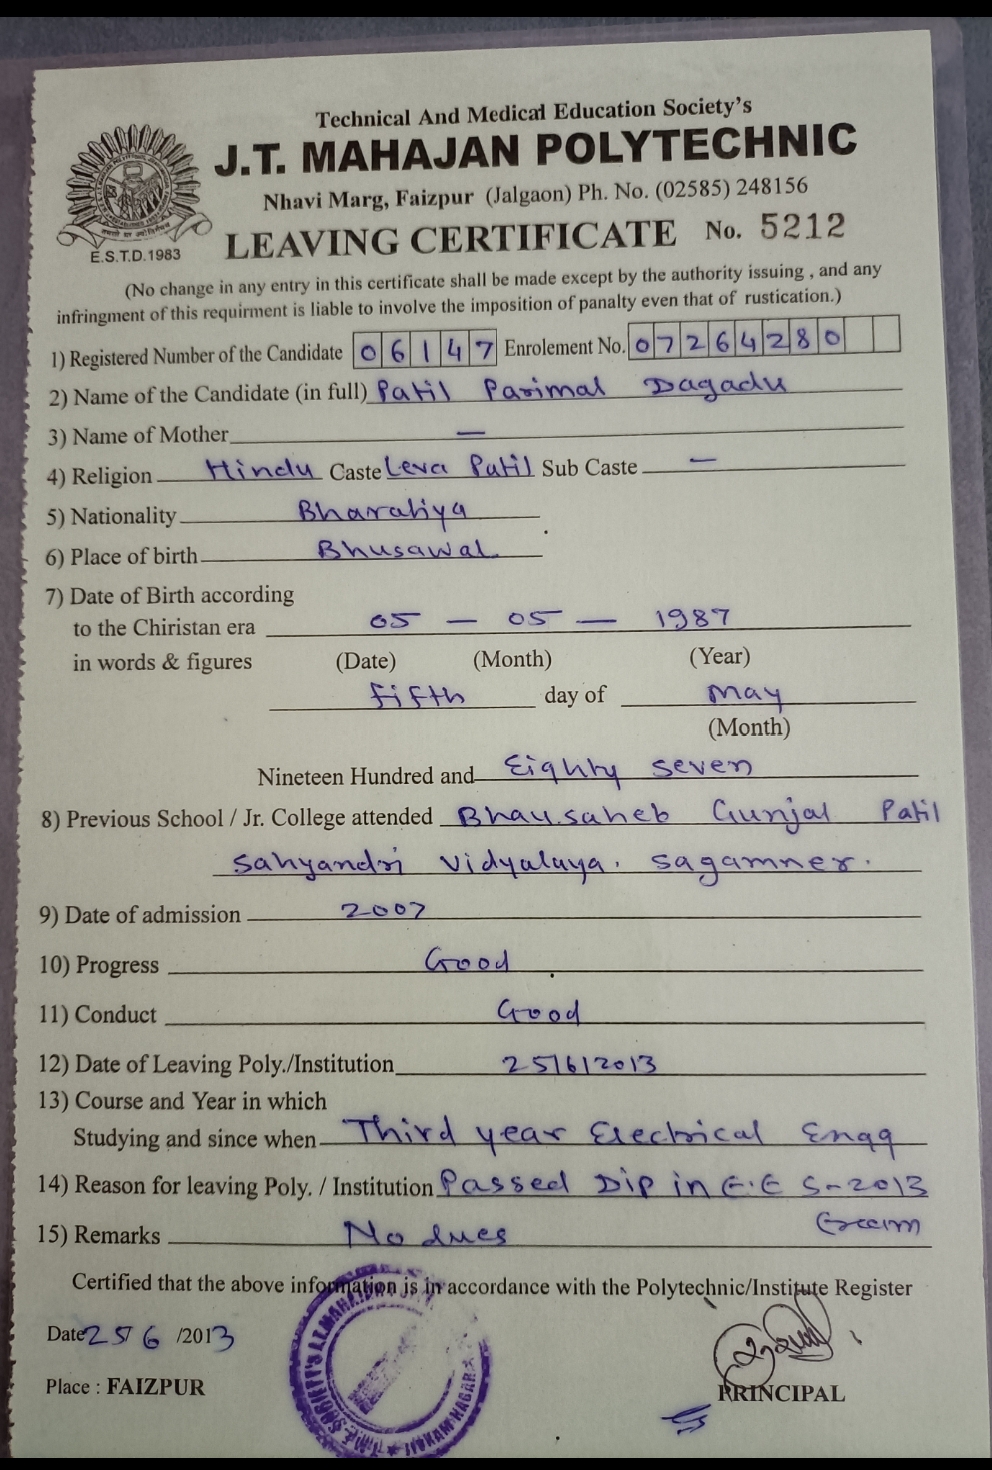 Technical And Medical Education Society's
J.T. MAHAJAN POLYTECHNIC
Nhavi Marg, Faizpur (Jalgaon) Ph. No. (02585) 248156
E.S.T.D.1983
LEAVING CERTIFICATE No. 5212
(No change in any entry in this certificate shall be made except by the authority issuing , and any
infringment of this requirment is liable to involve the imposition of panalty even that of rustication.)
1) Registered Number of the Candidate 06147 Enrolement No. 07264280
2) Name of the Candidate (in full) Patil Parimal Dagadu
3) Name of Mother —
4) Religion Hindu Caste Leva Patil Sub Caste —
5) Nationality Bharatiya
6) Place of birth Bhusawal
7) Date of Birth according
to the Chiristan era 05 — 05 — 1987
in words & figures (Date) (Month) (Year)
fifth day of may
(Month)
Nineteen Hundred and Eighty seven
8) Previous School / Jr. College attended Bhausaheb Gunjal Patil
Sahyandri Vidyalaya. Sagamner.
9) Date of admission 2007
10) Progress Good
11) Conduct Good
12) Date of Leaving Poly./Institution 25/6/2013
13) Course and Year in which
Studying and since when Third year Electrical Engg
14) Reason for leaving Poly. / Institution Passed Dip in E.E S-2013
Exam
15) Remarks No dues
Certified that the above information is in accordance with the Polytechnic/Institute Register
Date 25 6 /2013
Place : FAIZPUR
PRINCIPAL